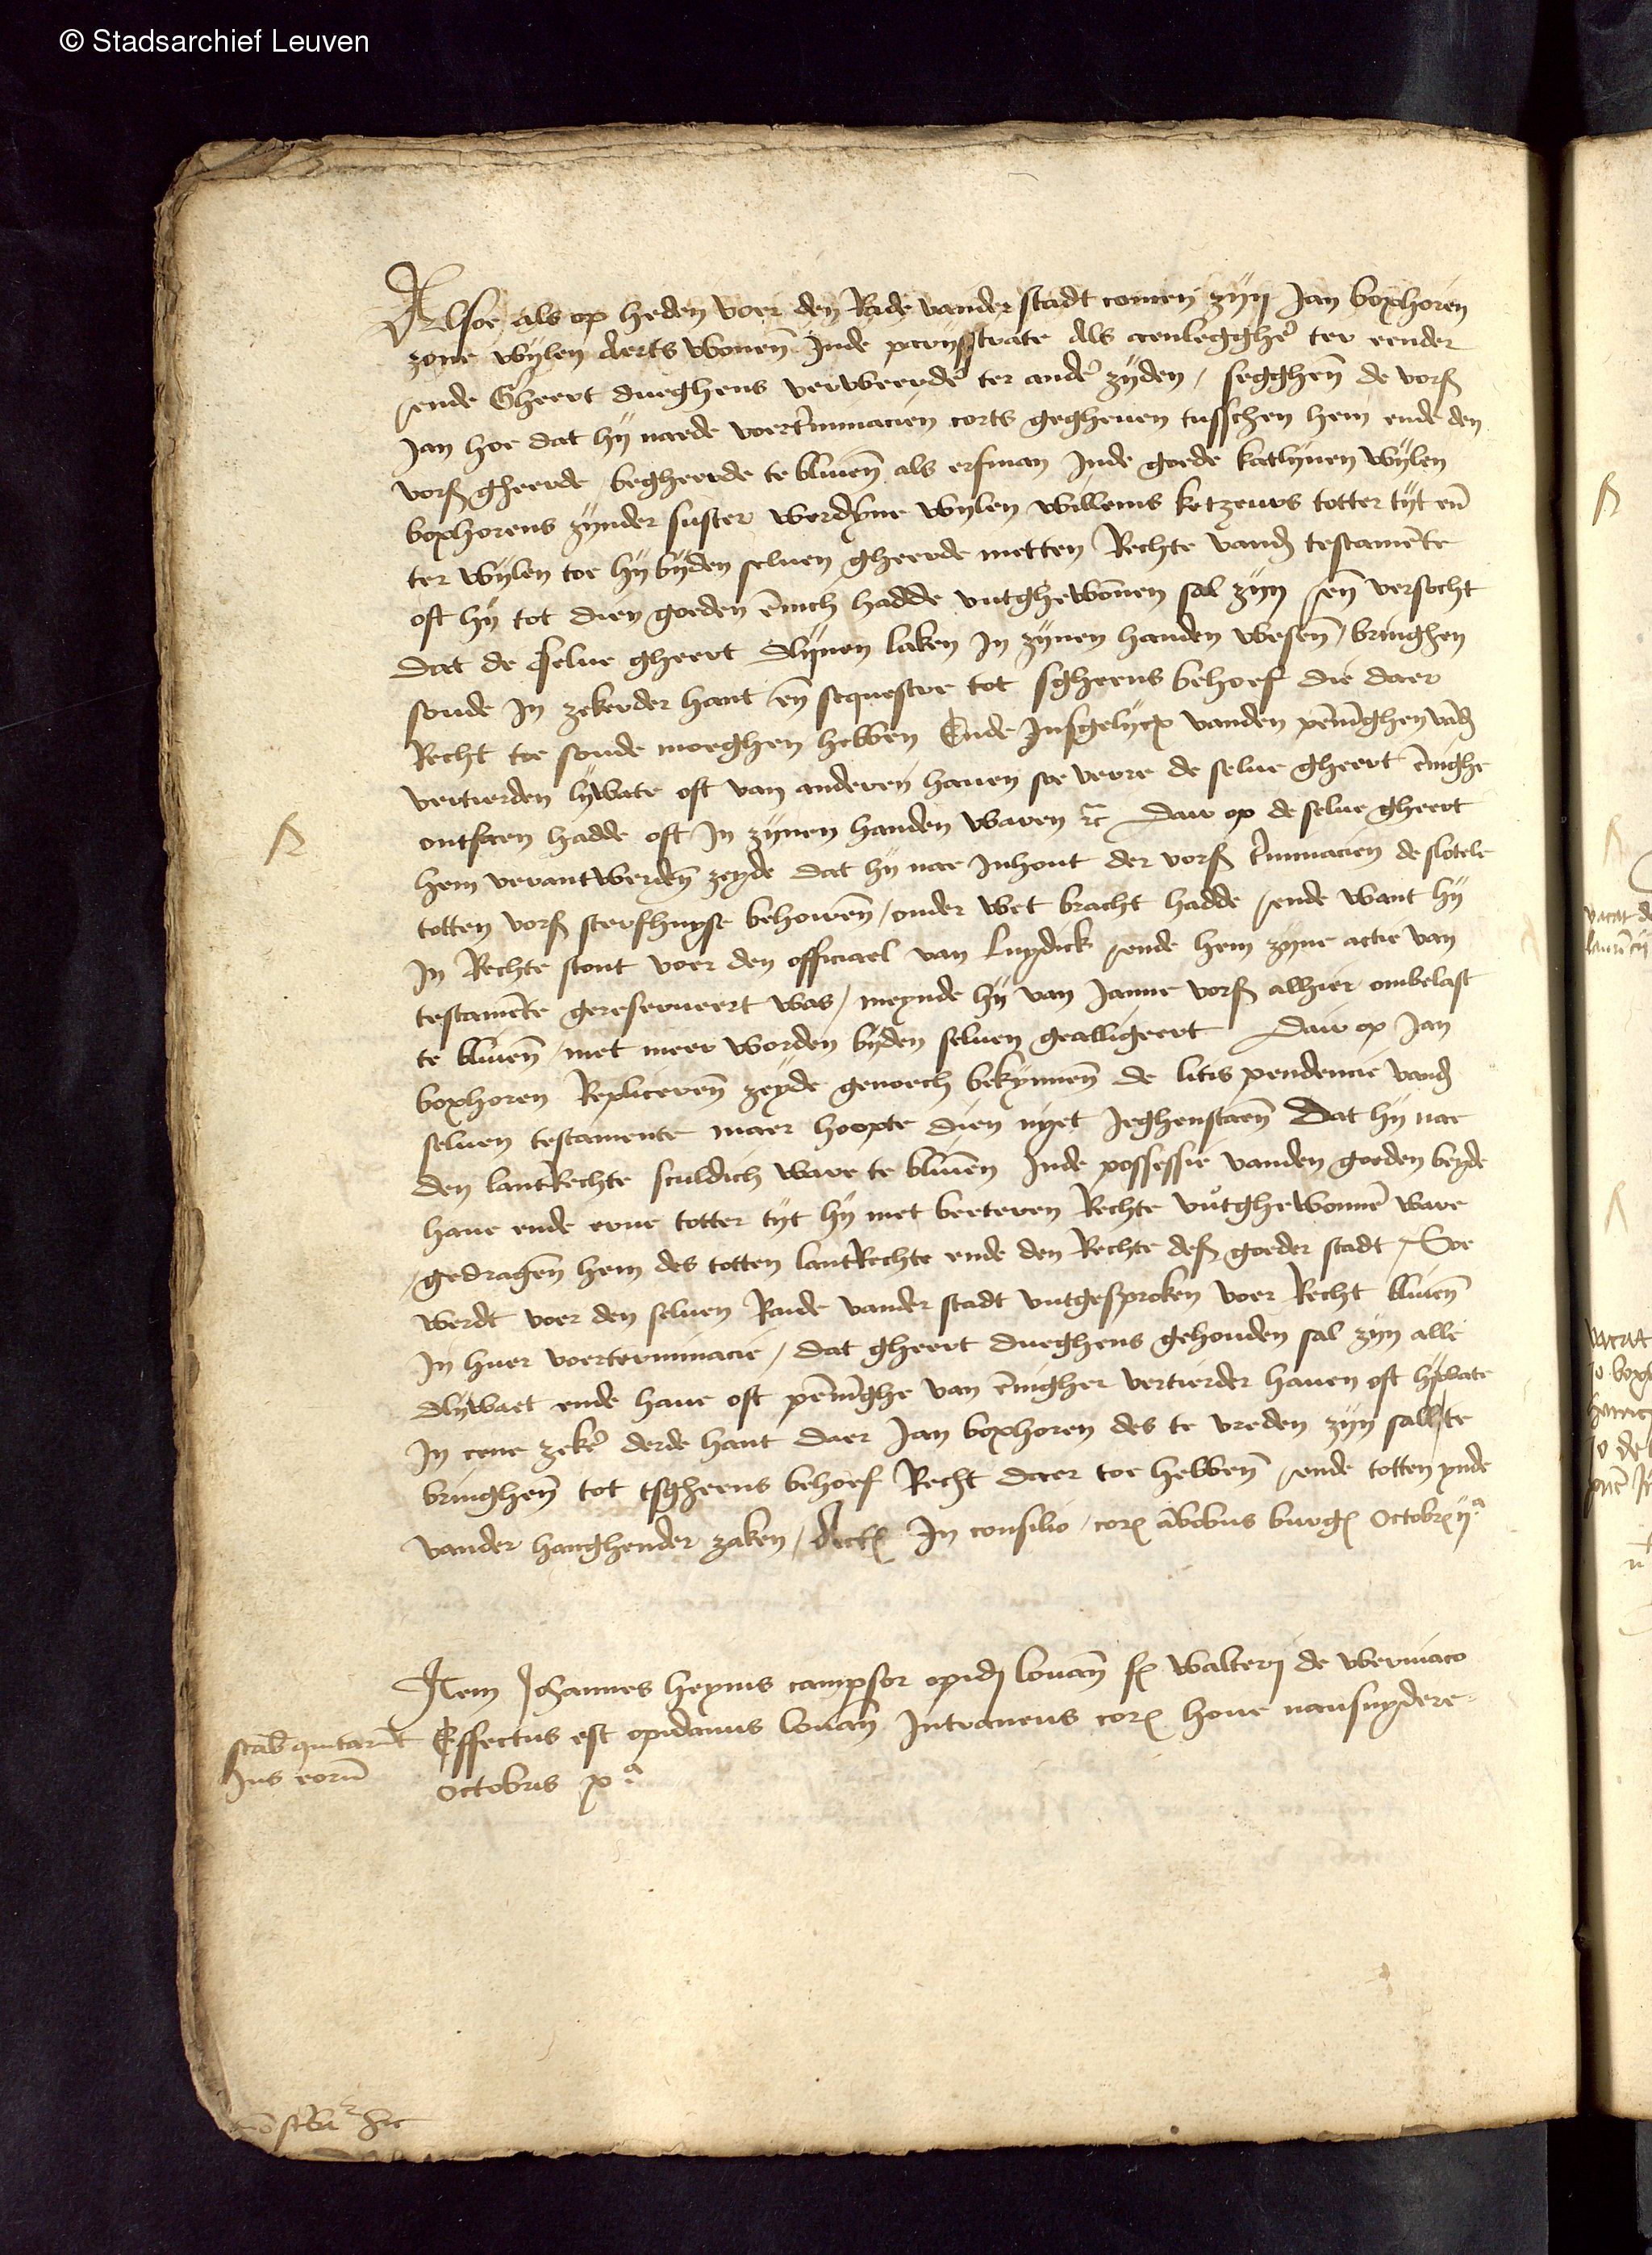 © Stadsarchief Leuven
Alsoe als op heden voer den Rade vander stadt comen zijn Jan boxhoren
zone wijlen Aerts wonen Inde parijsstrate als aenleggher ter eender
ende Gheert dueghens verweerder ter ander zijden / segghen de vors
Jan hoe dat hij naede voerterminacien corts gegheven tusschen hem ende den
vors gheerde begheerde te bliven als erfman Inde goede katlijnen wijlen
boxhorens zijnder suster werdynne wijlen willems ketzeurs totter tijt en
ter wijlen toe hij bijden selven gheerde metten Rechte vanden testamente
oft hij tot dien goeden enich hadde uutghewonnen sal zijn en versocht
dat de selve gheert dlijnen laken In zijnen handen wesen / bringhen
soude In zekerder hant en sequestre tot sgheens behoef die daer
Recht toe soude moeghen hebben Ende Insgelijcx vanden penninghen vanden
vertierden lywate oft van anderen haven soe verre de selve gheert eninghe
ontfaen hadde oft In zijnen handen waren etc Dair op de selve gheert
hem verantwerden zeyde dat hij nae Inhout der vors terminacien de slotele
totten vors sterfhuyse behoiren / onder wet bracht hadde / ende want hij
In Rechte stont voer den officiael van Luydick / ende hem zijne actie van
testamente gereserveert was / meynde hij van Janne vors alhier ombelast
te bliven / met meer worden bijden selven gealligeert Dair op Jan
boxhoren Repliceren zeyde genoech bekynnen de litis pendencie vanden
selven testamente maer hoepte dien nyet Jeghenstaen Dat hij nae
den lantRechte sculdich ware te bliven Inde possessie vanden goeden beyde
have ende erve totter tijt hij met beeteren Rechte uutghewonnen ware
gedragen hem des totten lantRechte ende den Rechte deser goeder stadt / Soe
werdt voer den selven Raide vander stadt uutgesproken voer Recht bliven
In huer voerterminacie / dat gheert dueghens gehouden sal zijn alle
dlijwaet ende have oft penninghe van enigher vertierder haven oft lijwate
In eene zeker derde hant daer Jan boxhoren des te vreden zijn sall te
bringhen tot tsgheens behoef Recht daer toe hebben / ende totten ynde
vander hanghender zaken / Actum In consilio / cor ambobus burg Octobr ija
Item Johannes heyms campsor opidi lovan f walteri de werviaco
Effectus est opidanus lovan Intraneus cor hove nausnydere
octobris xa
scab quitarunt
Jus eorum